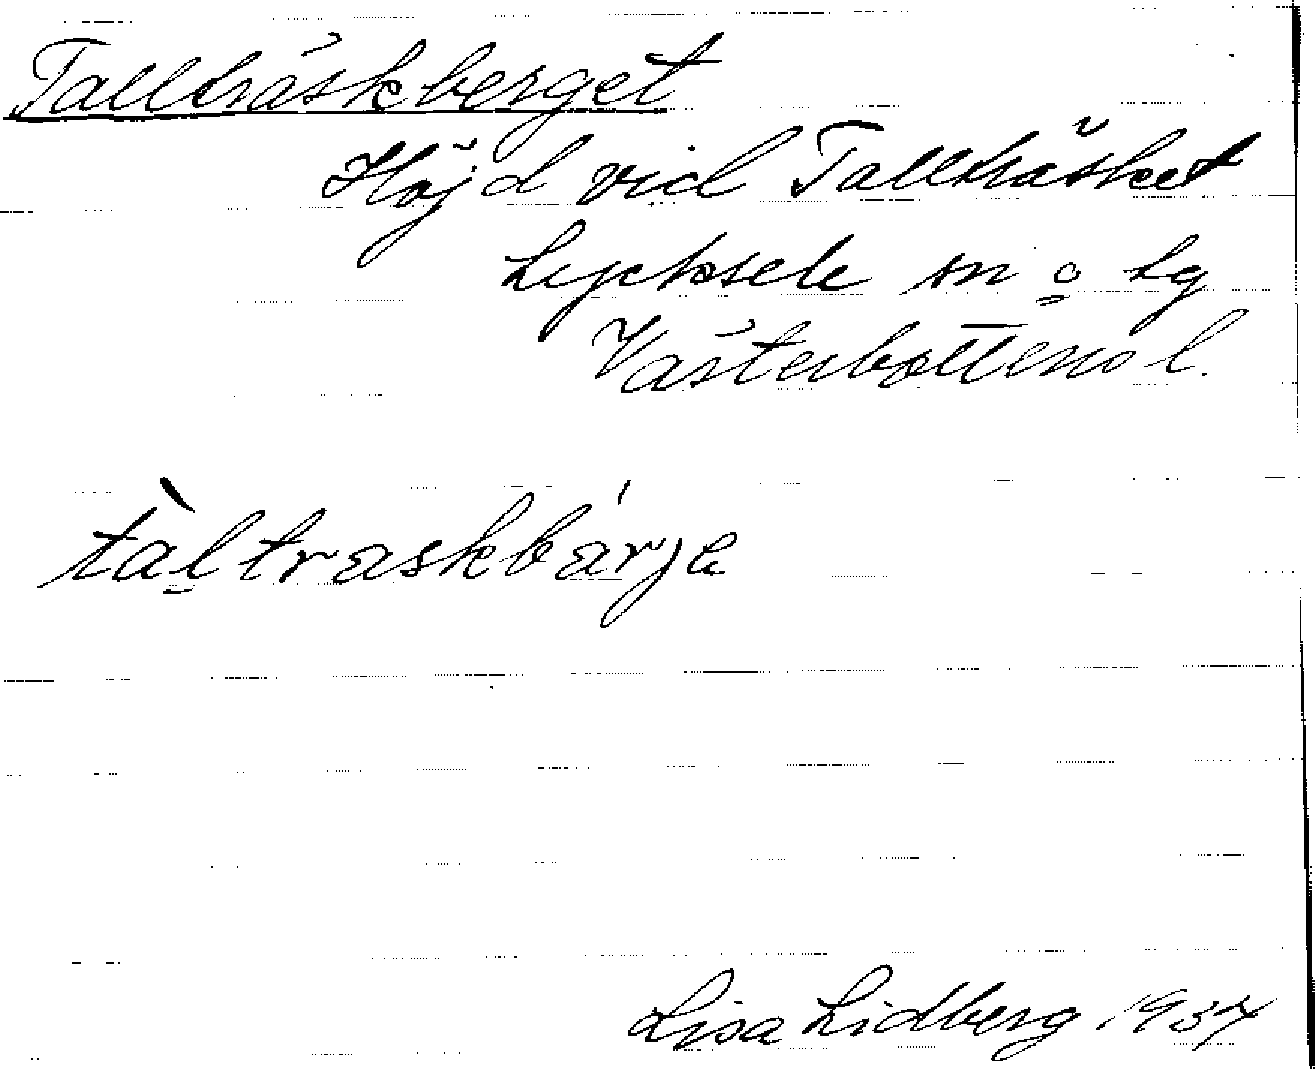 Tallträskberget
Höjd vid Tallträsket
Lycksele sn o lg
Västerbottens l.
tàltraskbárje
Lisa Lidberg 1937